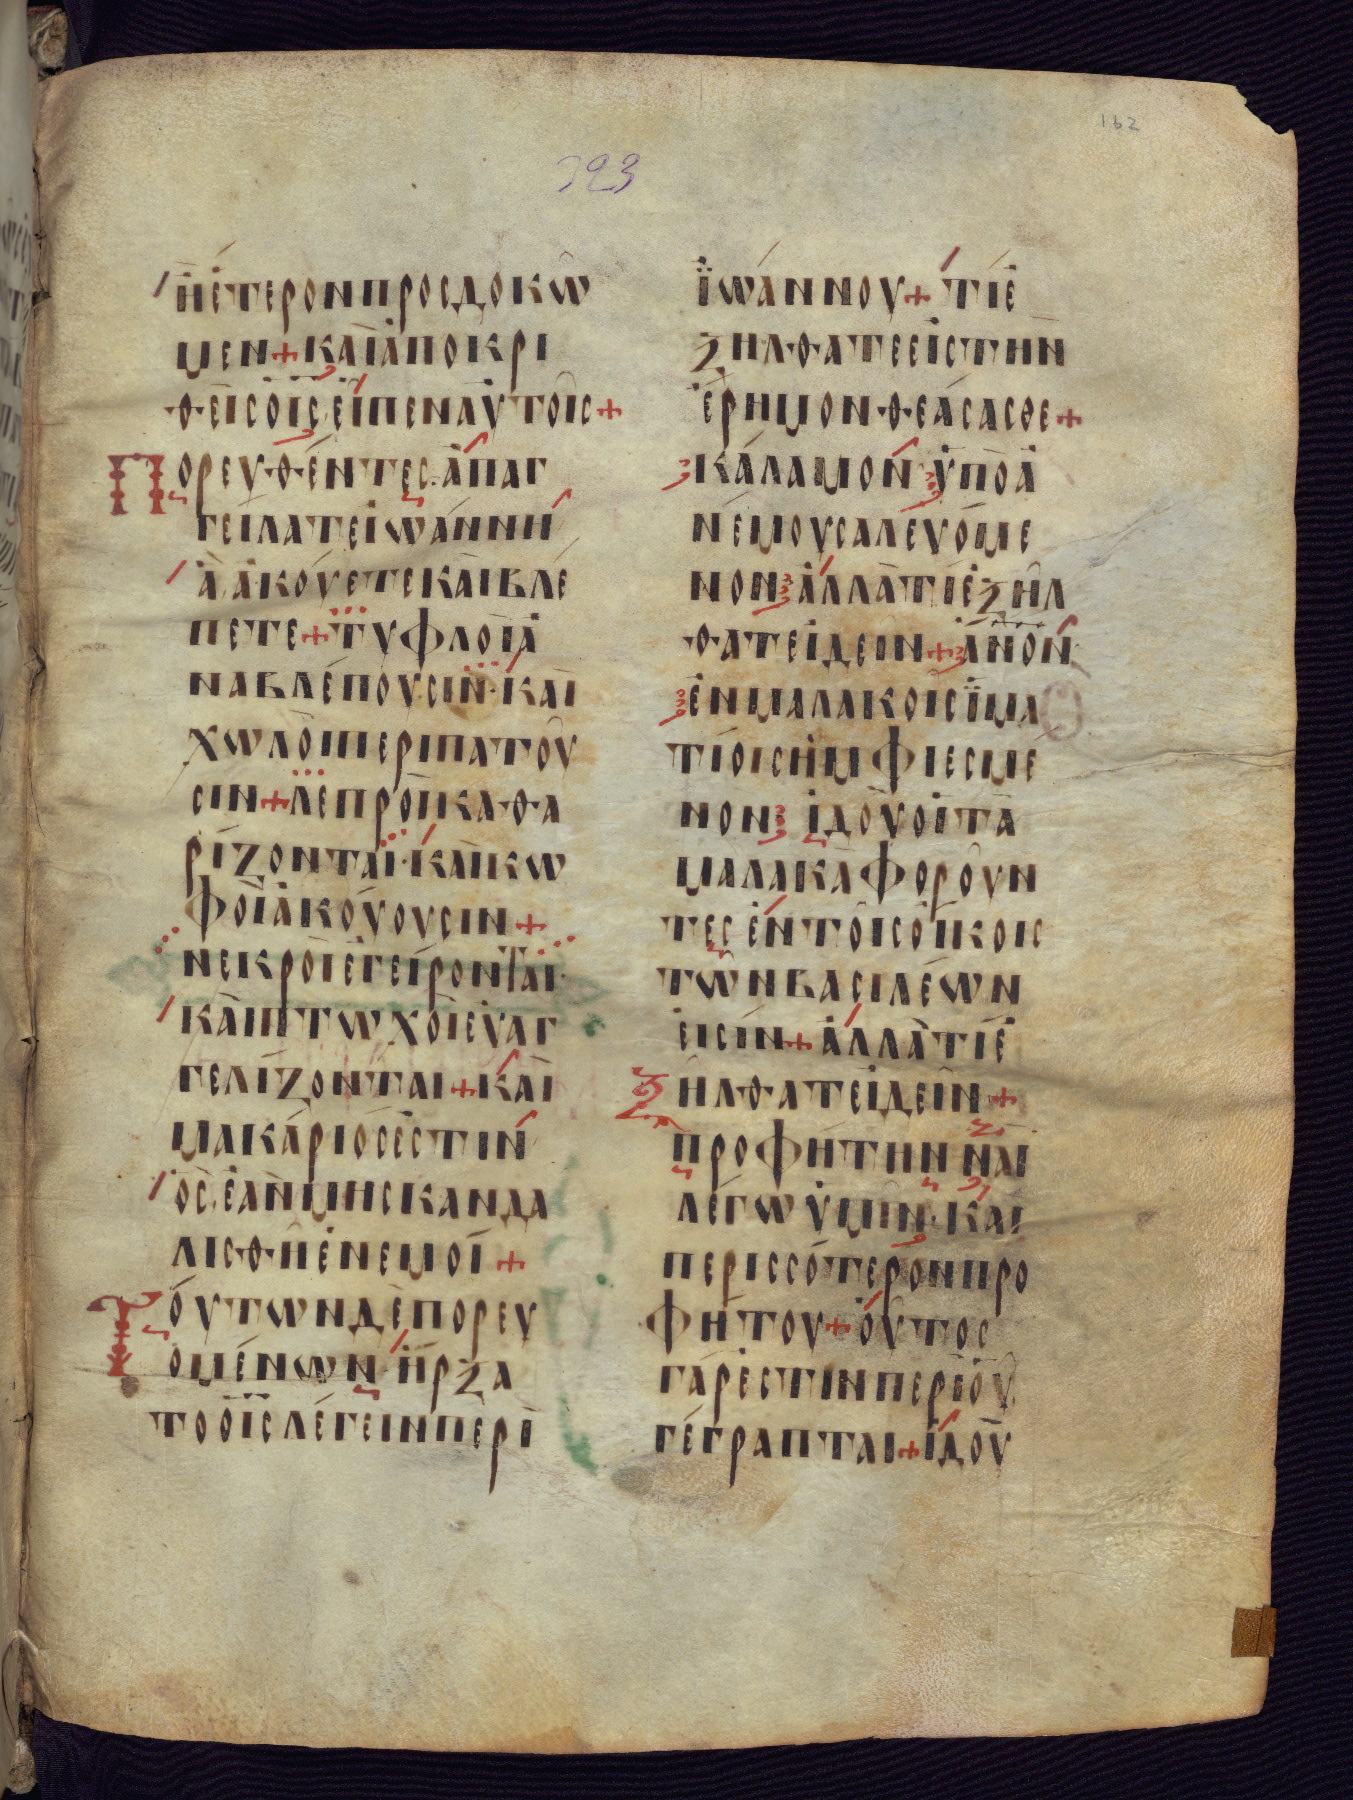 162
323
ἢ ἕτερον προσδοκῶ
μεν + καὶ ἀποκρι
θεὶς ὁ ις εἶπεν αὐτοῖς +
Πορευθέντες ἀπαγ
γείλατε ἰωάννη
ἃ ἀκούετε καὶ βλέ
πετε + τυφλοὶ ἀ
ναβλέπουσιν · καὶ
χωλοὶ περιπατοῦ
σιν + λεπροὶ καθα
ρίζονται · καὶ κω
φοὶ ἀκούουσιν +
νεκροὶ ἐγείρονται ·
καὶ πτωχοὶ εὐαγ
γελίζονται + καὶ
μακάριος ἐστιν
ὃς ἐὰν μη σκανδα
λισθῆ ἐν ἐμοί +
Τούτων δὲ πορευ
ομένων · ἤρξα
το ὁ ις λέγειν περὶ
ϊωάννου + τί ἐ
ξήλθατε εἰς τὴν
ἔρημον θεάσασθε +
κάλαμον ὑπὸ ἀ
νέμου σαλευόμε
νον ἀλλὰ τί ἐξήλ
θατε ἰδεῖν + ανον
ἐν μαλακοῖς ϊμα
τίοις ἠμφιεσμέ
νον ἰδοὺ οἱ τὰ
μαλακὰ φοροῦν
τες ἐν τοῖς οἴκοις
τῶν βασιλέων
εἰσίν + ἀλλὰ τί ἐ
ξήλθατε ἰδεῖν +
προφήτην ναὶ
λέγω ὑμῖν · καὶ
περισσότερον προ
φήτου + οὗτος
γάρ ἐστιν περὶ οὗ
γέγραπται + ἰδοὺ